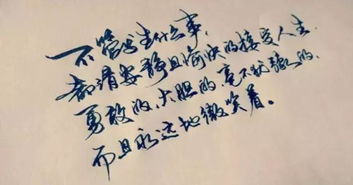 不管发生什么事，
都请安静且愉快的接受人生，
勇敢的、大胆的、毫不犹豫的，
而且永远地微笑着。